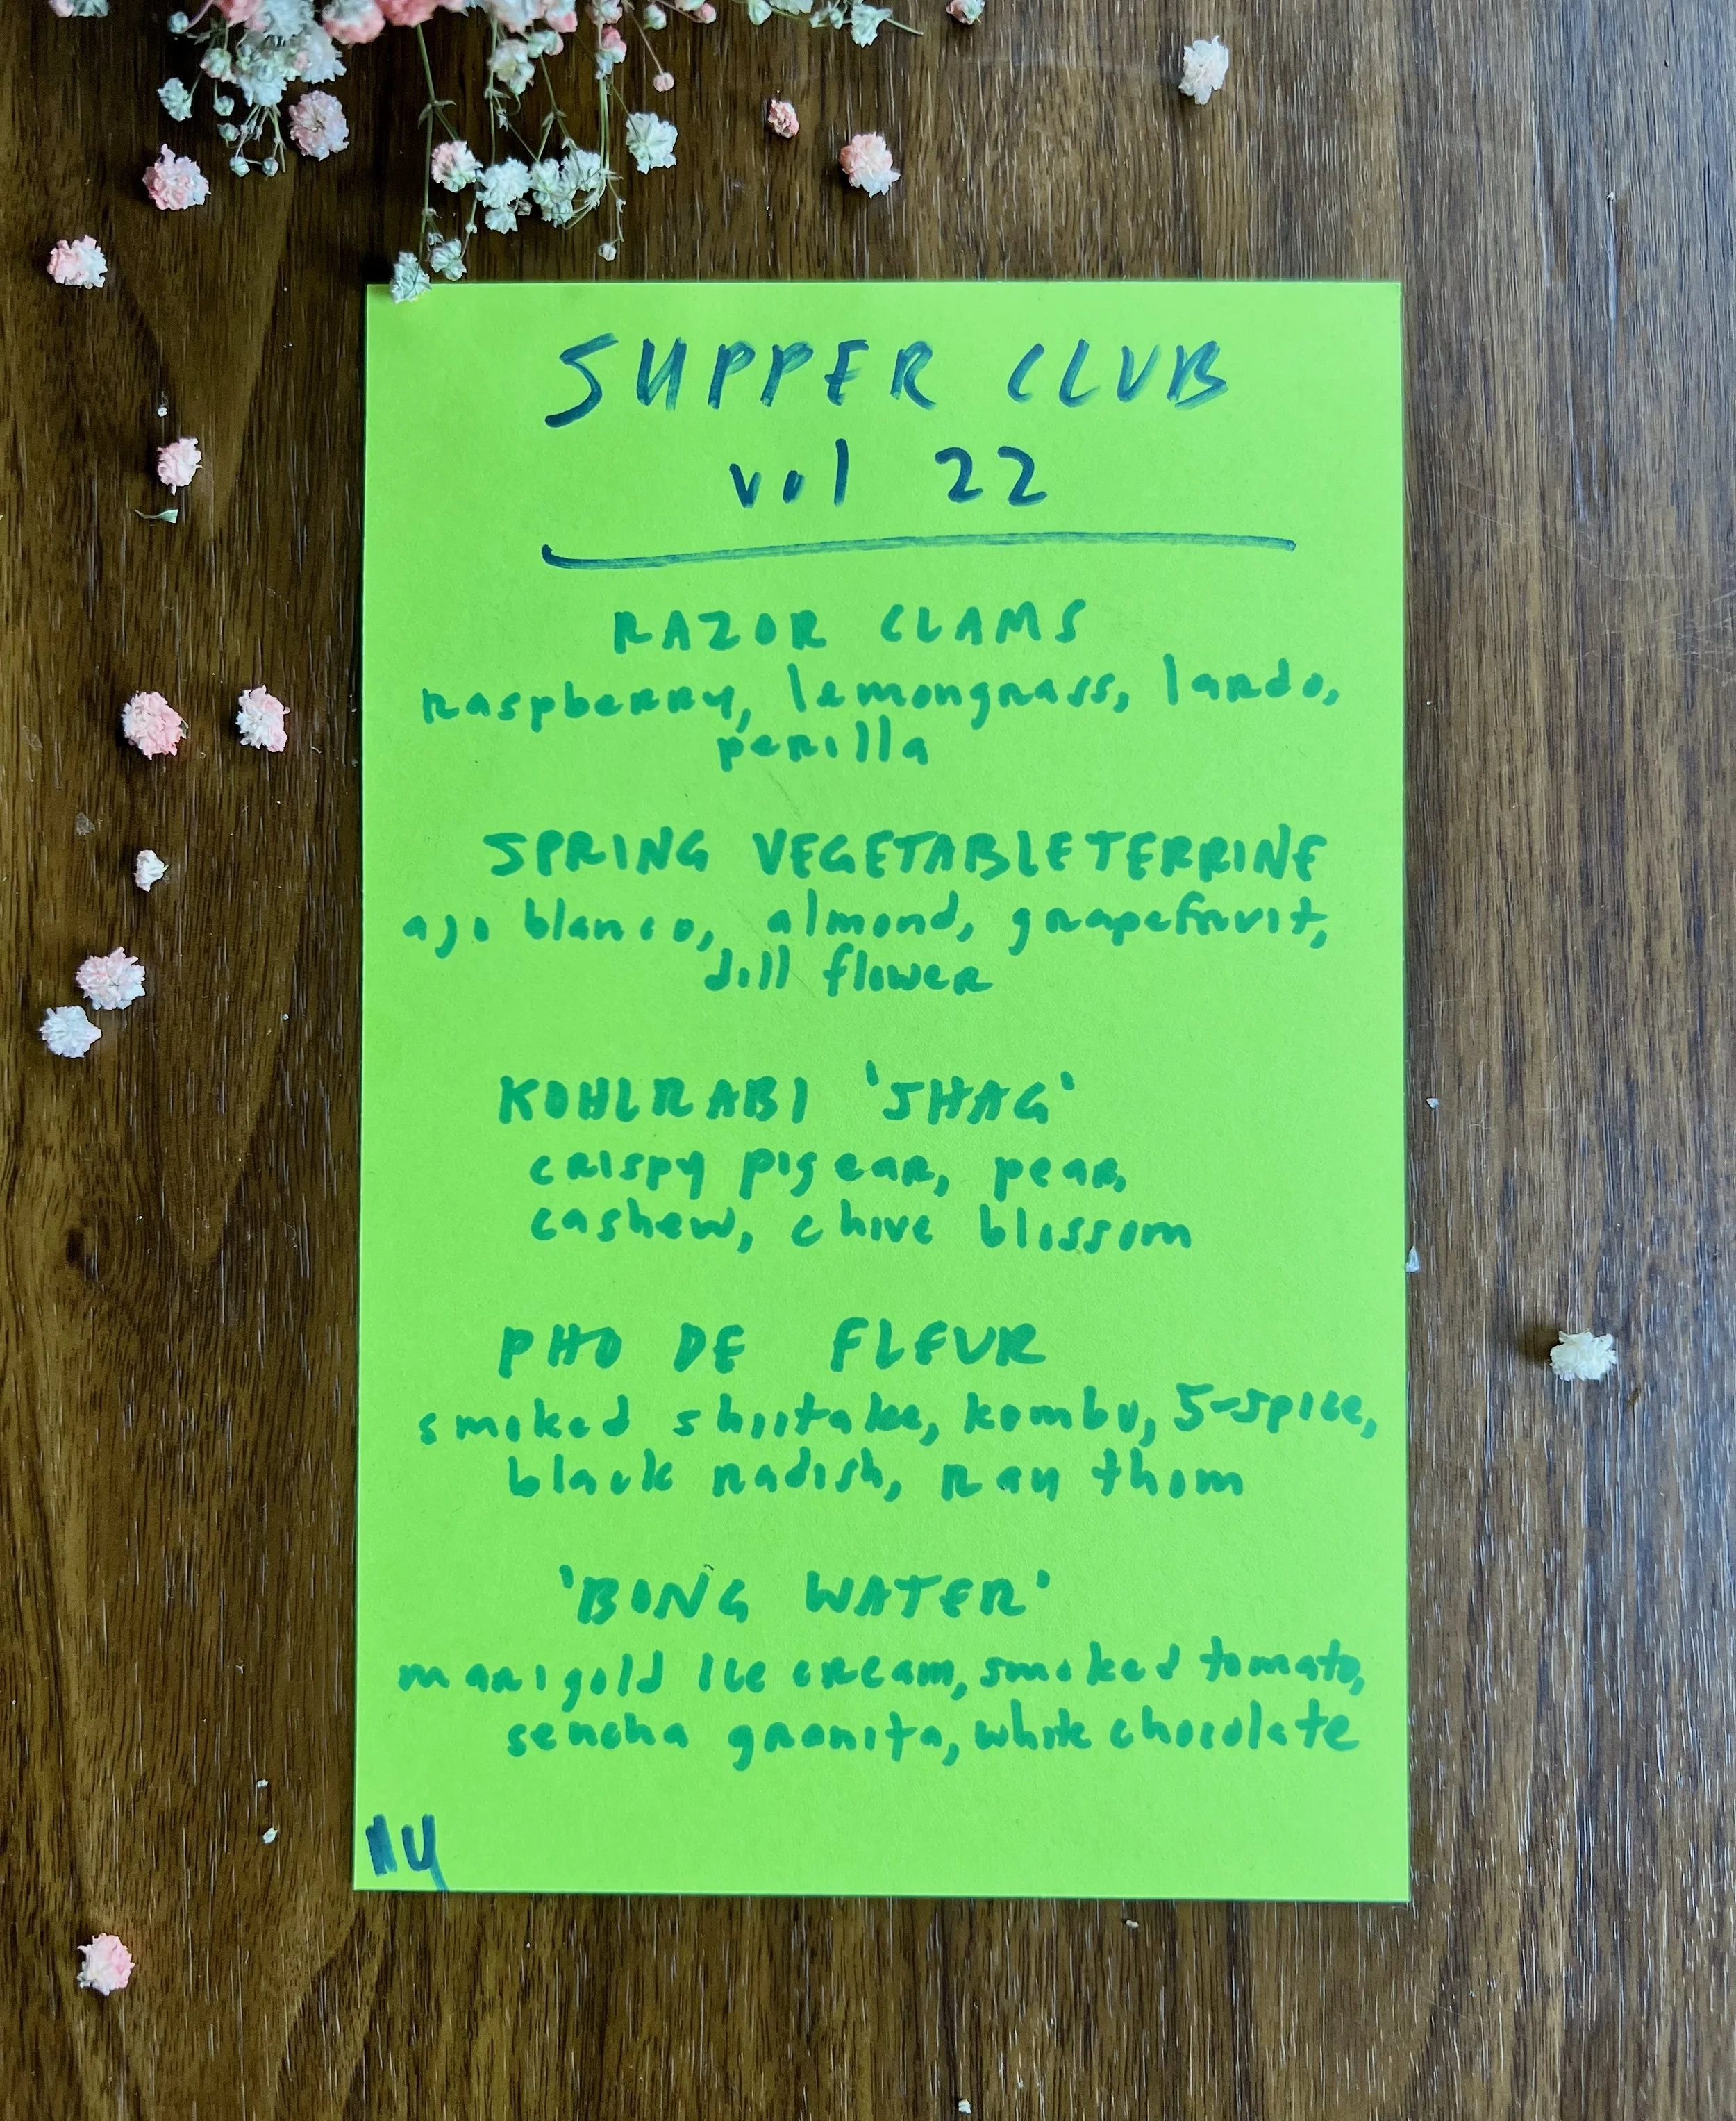 SUPPER CLUB
vol 22
RAZOR CLAMS
raspberry, lemongrass, lardo,
perilla
SPRING VEGETABLE TERRINE
ajo blanco, almond, grapefruit,
dill flower
KOHLRABI 'SHAG'
crispy pig ear, pear,
cashew, chive blossom
PHO DE FLEUR
smoked shiitake, kombu, 5-spice,
black radish, rau thom
'BONG WATER'
marigold ice cream, smoked tomato,
sencha granita, white chocolate